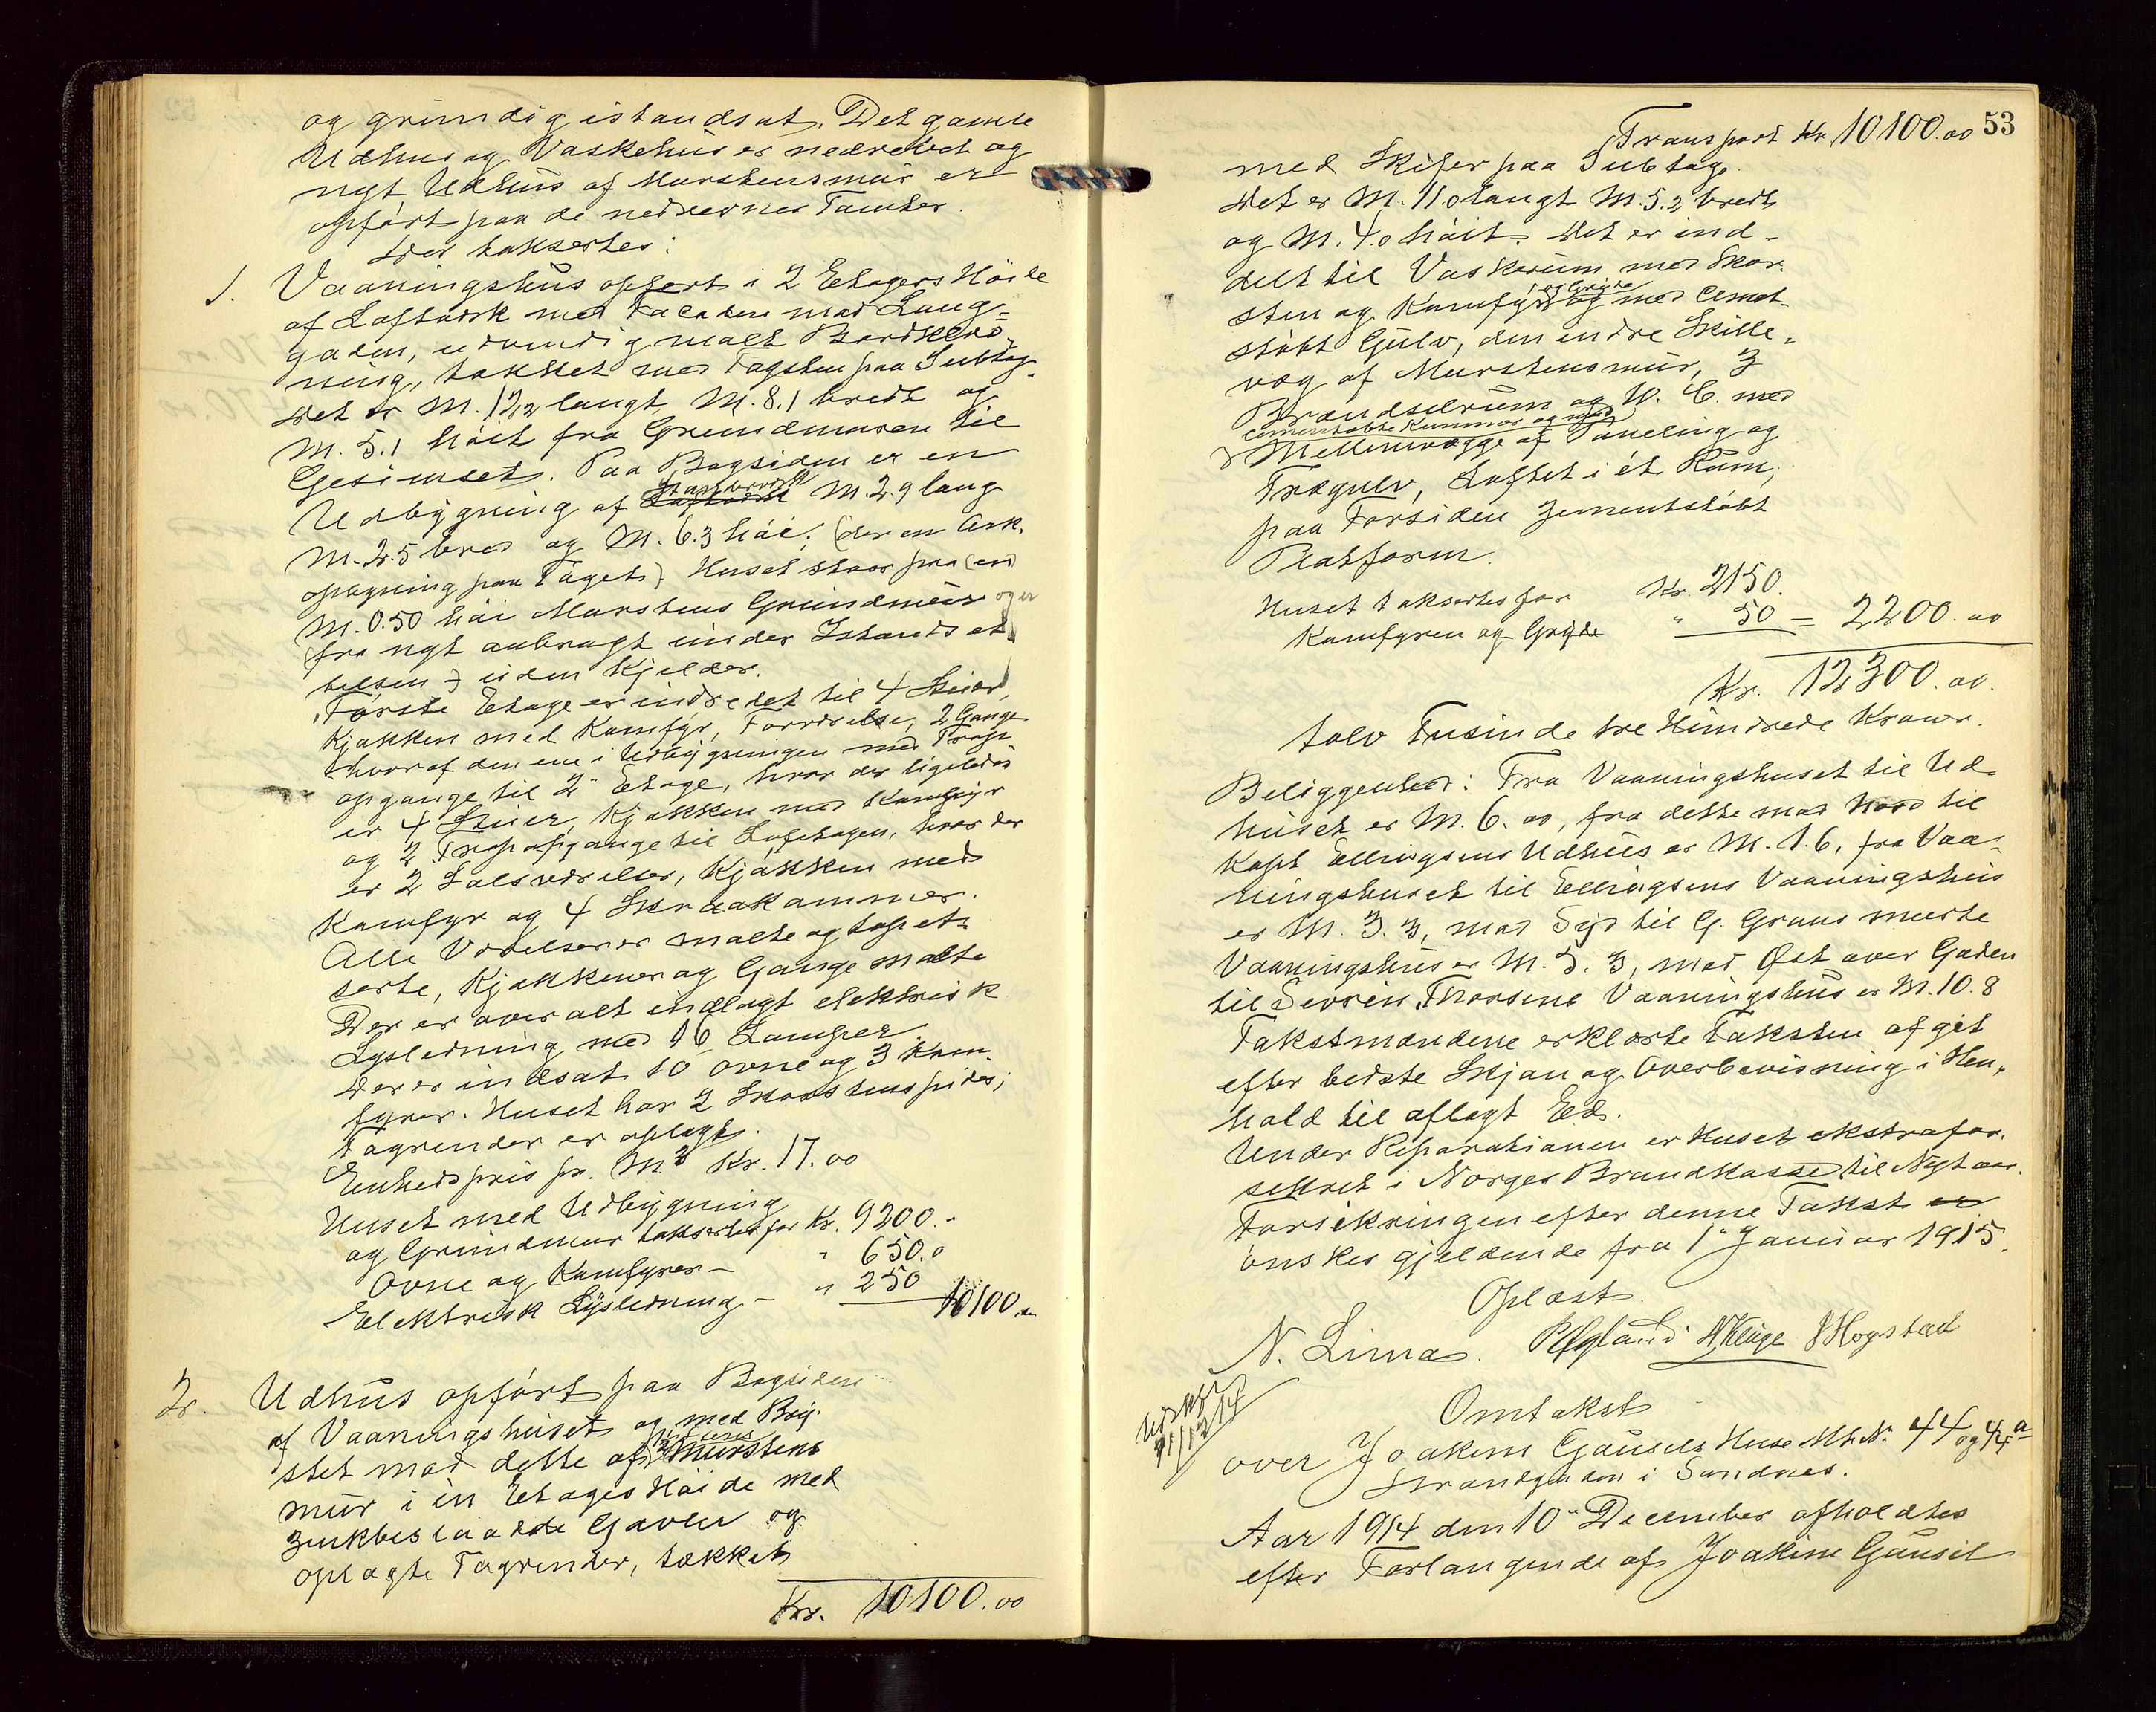 og grundig istandsat. Det gamle
Udhus og Vaskehus er nedrevet og
nyt Udhus af Murstensmur er
opført paa de nedrevnes Tomter.
Der taksertes:
1. Vaaningshus opført i 2 Etagers Höide
af Loftværk med Facaden mod Lang=
gaden, udvendig malt Bordklæd-
ning, tækket med Tagsten paa Subtag.
Det er M. 12,2 langt M. 8,1 bredt og
M. 5,1 höit fra Grundmuren til
Gesimset. Paa Bagsiden er en
Udbygning af Loftværk M. 2.9 lang
M. 2.5 bred og M. 6.3 höi; (der en Ark.
opbygning paa Taget). Huset staar paa (en)
M. 0.50 höi Murstens Grundmur og er
(fra nyt anbragt under Istandsæt
telsen) uden Kjelder.
Förste Etage er indredet til 4 Stuer,
Kjøkken med Komfyr, Forværelse, 2 Gange
hvoraf den ene i Udbygningen med Trap
opgange til 2" Etage, hvor der ligeledes
er 4 Stuer, Kjøkken med Komfyr
og 2 Trapopgange til Loftetagen, hvor der
er 2 Salsværelser, Kjøkken med
Komfyr og 4 Skraakammer.
Alle Værelser er malte og tapet-
serte, Kjøkkener og Gange malte
Der er overalt indlagt elektrisk
Lysledning med 16 Lamper
Der er indsat 10 Ovne og 3 Kom-
fyrer. Huset har 2 Skorstenspiber;
Tagrender er oplagt.
Enhedspris pr. M³ Kr. 17.00
Huset med Udbygning
og Grundmur taksertes for Kr. 9200.-
Ovne og Komfyrer — " 650.0
Elektrisk Lysledning — " 250 10100.-
2. Udhus opført paa Bagsiden
af Vaaningshuset og med Bryg
stet mod dette af Murstens
mur i en Etages Höide med
zinkbeslaadde Gavler og
oplagte Tagrender, tækket
Kr. 10100.00
53
Transport Kr. 10100.00
med Skifer paa Subtag.
Det er M. 11.0 langt M. 5.2 bredt
og M. 4.0 höit. Det er ind-
delt til Vaskerum med Skor-
og Gryde
sten og Komfyr og med Cement-
stöbt Gulv, den endre Skille-
væg af Murstensmur, 3
Brændselrum og W. C. med
cementstøbte Kummer og med
Mellemvægge af Paneling og
Trægulv, Loftet i ét Rum,
paa Forsiden Zementstöbt
Platform.
Huset taksertes for Kr. 2150.
Komfyren og Gryde " 50 = 2200.00
Kr. 12300.00.
tolv Tusinde tre Hundrede Kroner.
Beliggenhed: Fra Vaaningshuset til Ud-
huset er M. 6.00, fra dette mod Nord til
Kapt Ellingsens Udhus er M. 1.6, fra Vaa-
ningshuset til Ellingsens Vaaningshus
er M. 3.3, mod Syd til G. Grans murte
Vaaningshus er M. 5.3, mod Øst over Gaden
til Sevrin Thorsens Vaaningshus er M. 10.8
Takstmændene erklærte Taksten afgit
efter bedste Skjøn og Overbevisning i Hen-
hold til aflagt Ed.
Under Reparationen er Huset ekstrafor-
sikret i Norges Brandkasse til Nytaar.
Forsikringen efter denne Takst er
önskes gjeldende fra 1" Januar 1915.
Oplæst.
N. Lima. H. Kluge Hogstad
11/12 14
Omtakst
over Joakim Gausels Huse Mt. N. 44 og 44 a
Strandgaden i Sandnes.
Aar 1914 den 10" December afholdtes
efter Forlangende af Joakim Gausel